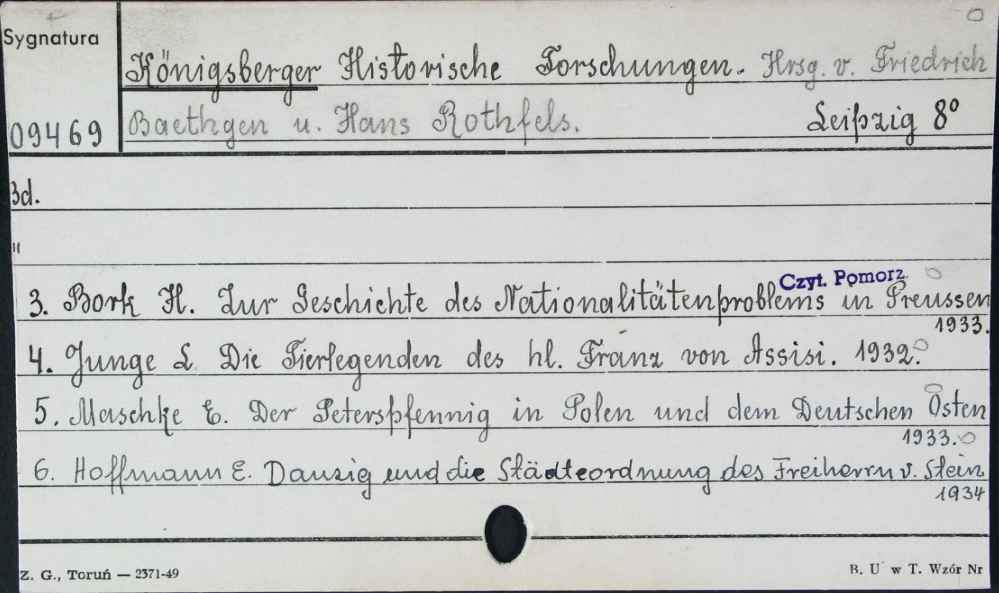 Sygnatura
Königsberger Historische Forschungen. Hrsg. v. Friedrich
09469 Baethgen u. Hans Rothfels. Leipzig 8°
Bd.
"
Czyt. Pomorz
3. Bork H. Zur Geschichte des Nationalitätenproblems in Preussen
1933.
4. Junge L. Die Tierlegenden des hl. Franz von Assisi. 1932.
5. Maschke E. Der Peterspfennig in Polen und dem Deutschen Osten
1933.
6. Hoffmann E. Danzig und die Städteordnung des Freiherrn v. Stein
1934
Z. G., Toruń — 2371-49 B. U w T. Wzór Nr